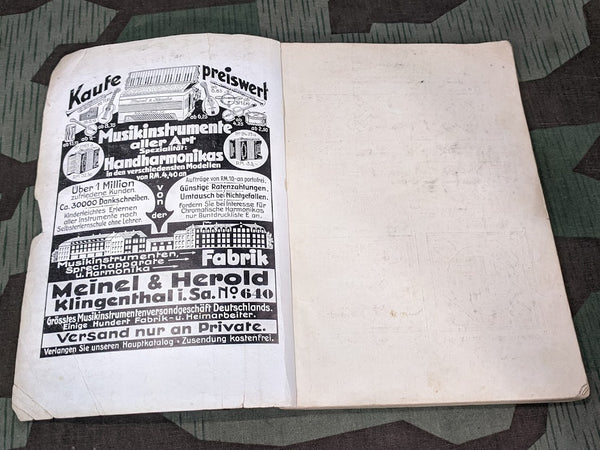 Kaufe preiswert
ab 6,25
ab 2,80
Musikinstrumente
aller Art
Spezialität:
Handharmonikas
in den verschiedensten Modellen
von RM. 4,40 an
Über 1 Million
zufriedene Kunden.
Ca. 30000 Dankschreiben.
Kinderleichtes Erlernen
aller Instrumente nach
Selbsterlernschule ohne Lehrer.
von der
Aufträge von RM. 10.- an portofrei.
Günstige Ratenzahlungen.
Umtausch bei Nichtgefallen.
Fordern Sie bei Interesse für
Chromatische Harmonikas
nur Buntdruckliste E an.
Musikinstrumenten,
Sprechapparate
u. Harmonika
Fabrik
Meinel & Herold
Klingenthal i. Sa. No 640
Grösstes Musikinstrumentenversandgeschäft Deutschlands.
Einige Hundert Fabrik- u. Heimarbeiter.
Versand nur an Private.
Verlangen Sie unseren Hauptkatalog • Zusendung kostenfrei.